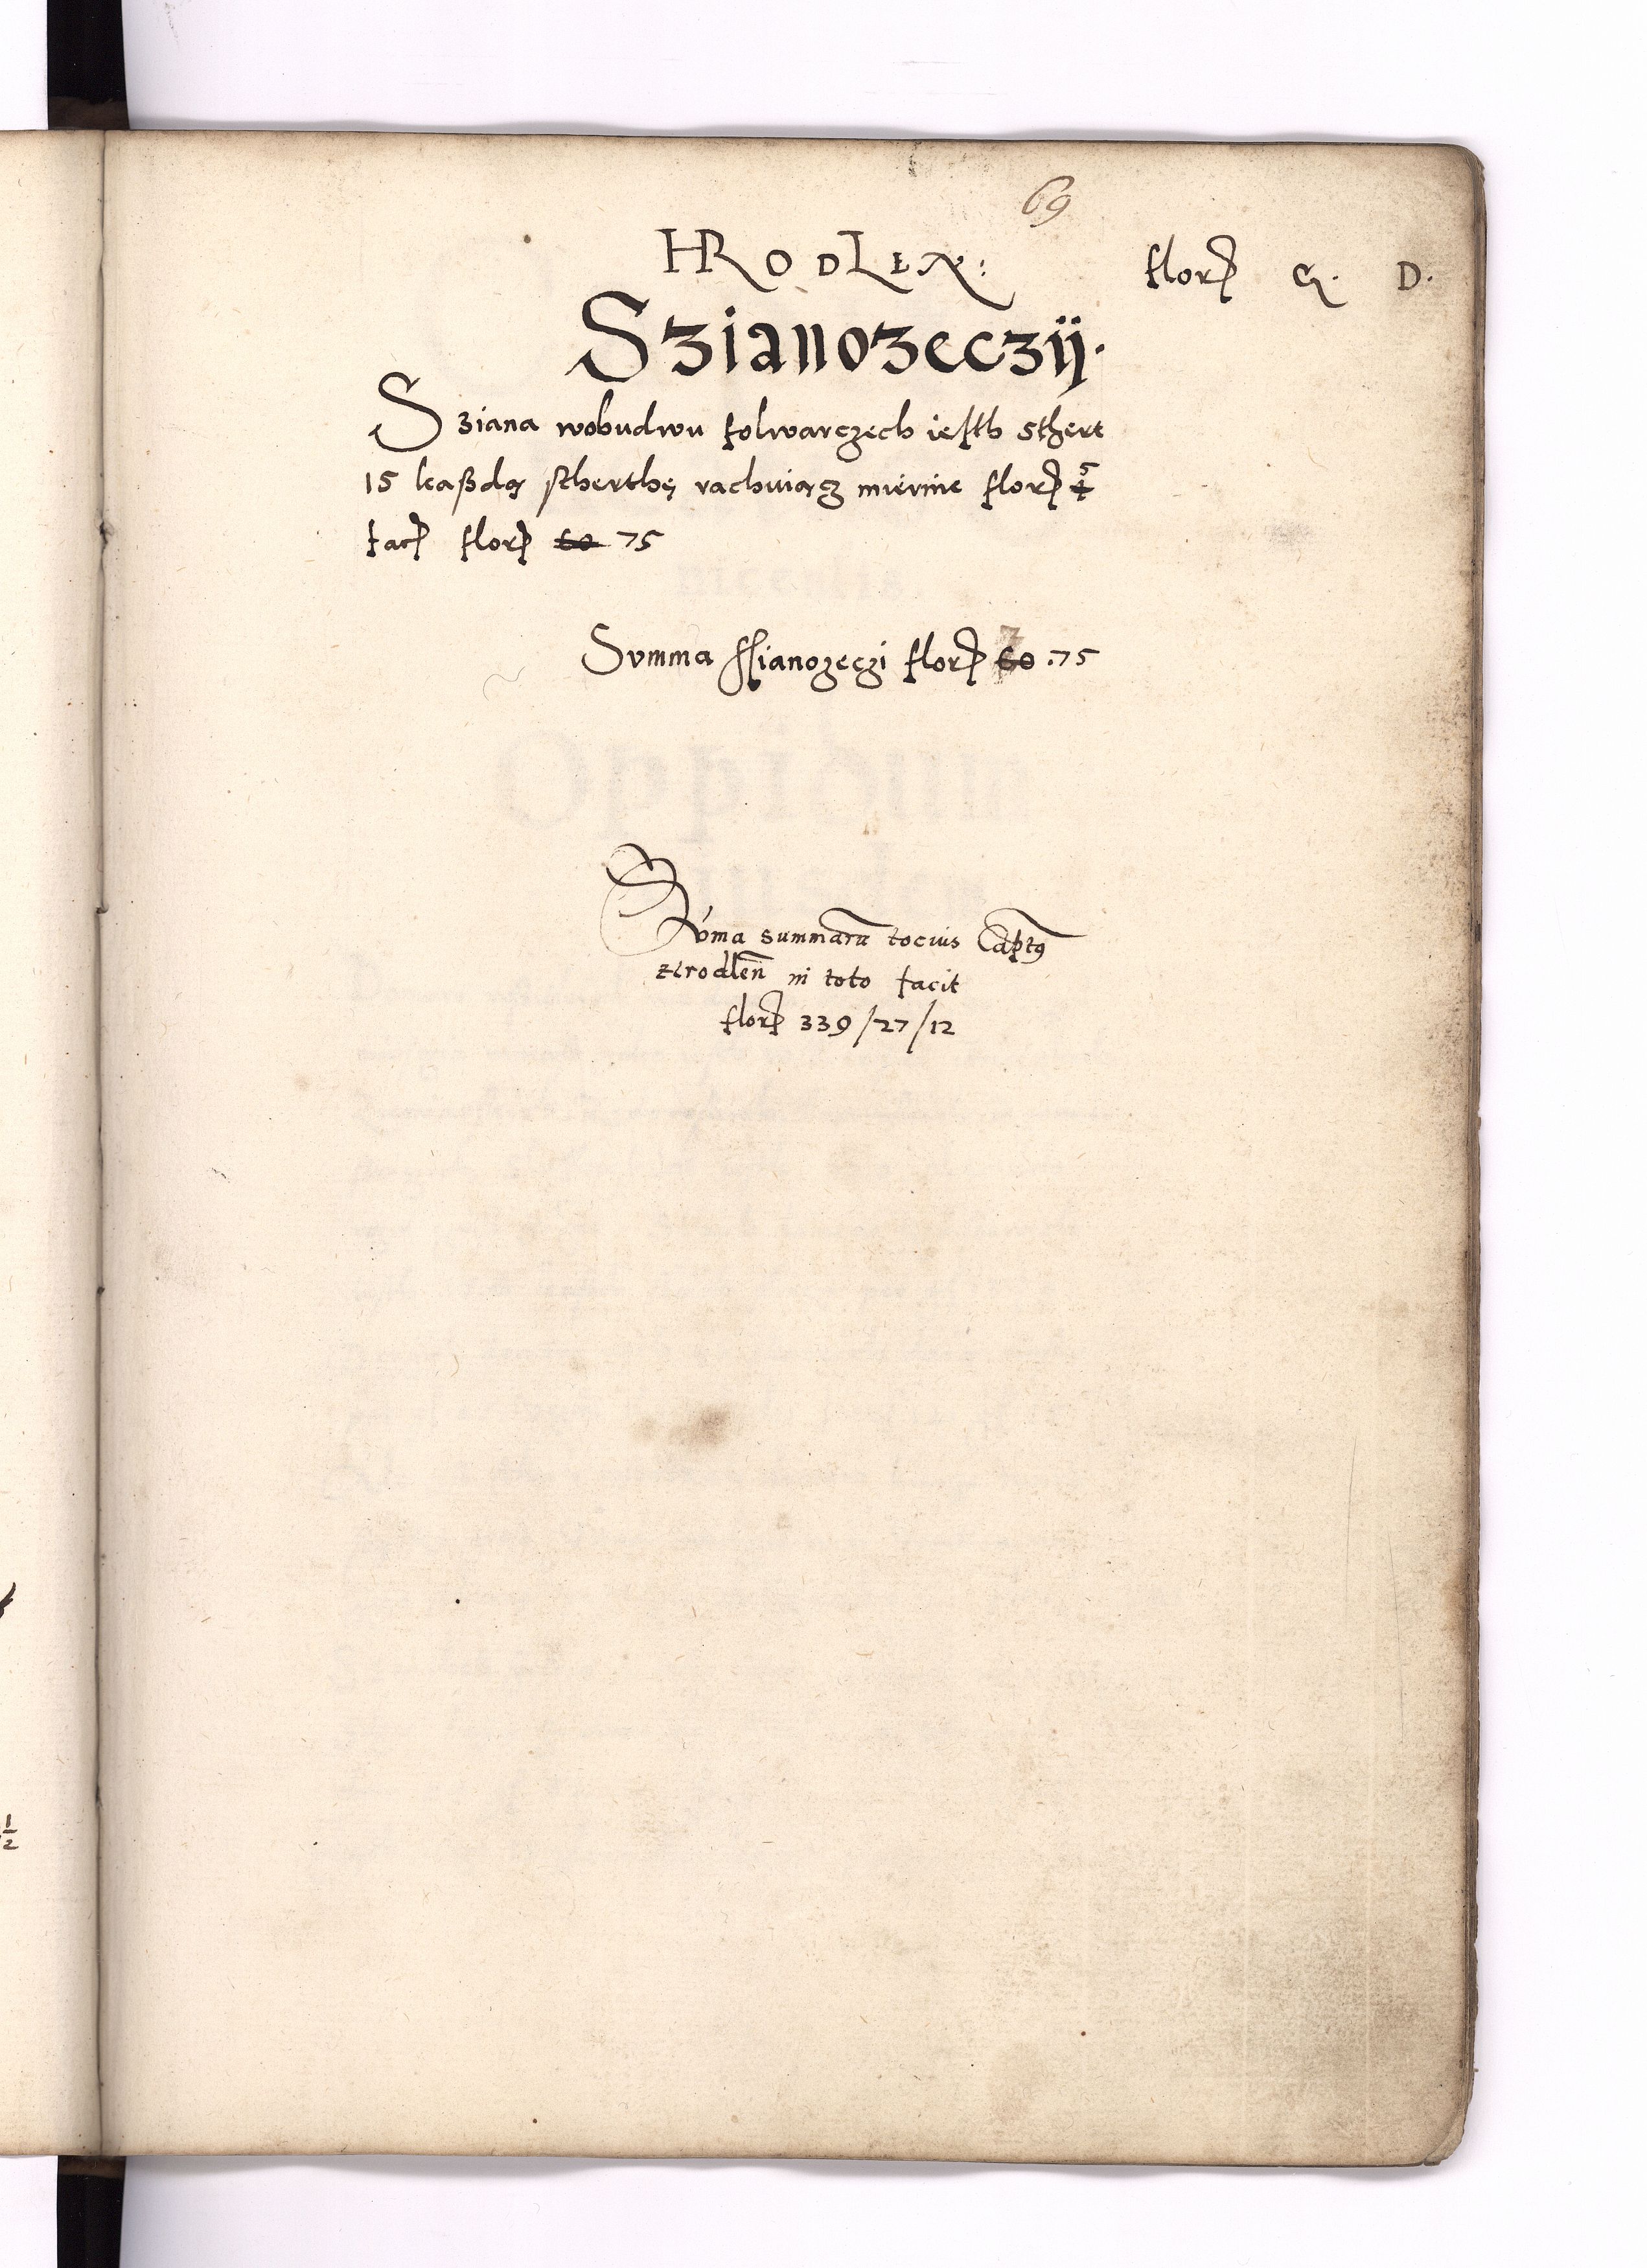 69
HRODLEN: florꝫ G. D.
Szianozeczij.
Sziana wobudwu folwarczech iesth sthert
15 kaßdą stherthę rachuiącz miernie florꝫ 4 5
facꝫ florꝫ 60 75
Summa ssianozeczi florꝫ 60 .75
Suma summarū tocius Captꝰ
Hrodlen̄ in toto facit
florꝫ 339/27/12
1/2